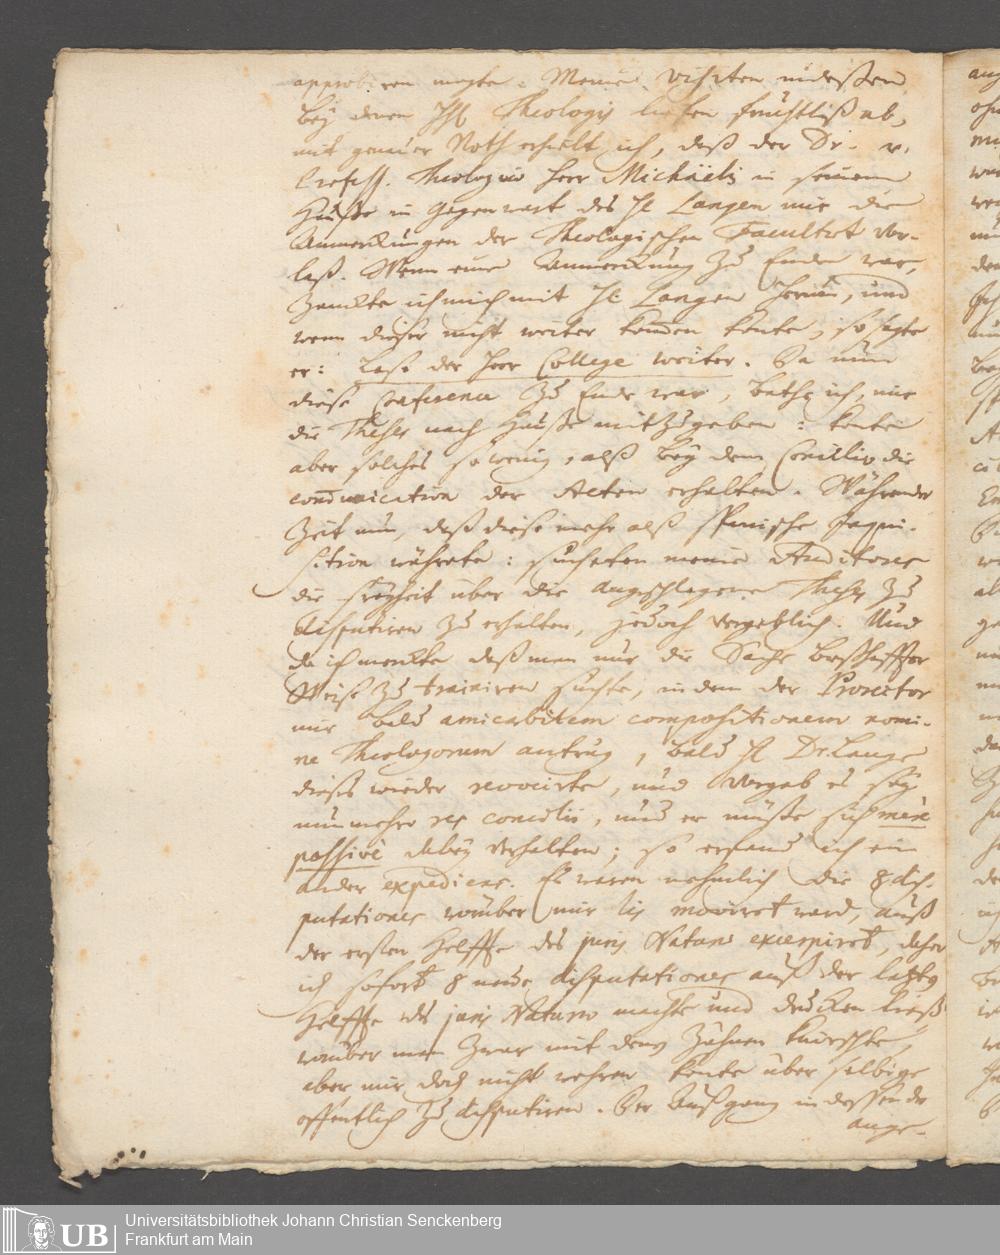 approbiren mogte. Meine visiten indeßen
bey denen Hh. Theologis lieffen fruchtloß ab,
mit genauer Noth erhielt ich, daß der Dr. v.
Profess. Theologiae Herr Michaelis in seinem
Hauße in Gegenwart des H. Langen mir die
Anmerckungen der Theologischen Facultet vor-
laß. Wenn eine Anmerckung zu Ende war,
zanckte ich mich mit H. Langen herum, und
wenn dieser nicht weiter kom̄en konte, so sagte
er: Lese der Herr College weiter. Da nun
diese Conference zu Ende war, bathe ich, mir
die Theses nach Hauße mitzugeben: konte
aber solches so wenig, alß bey dem Concilio die
com̄unication der Acten erhalten. Währender
Zeit nun, daß diese mehr alß Spanische Inqui-
sition währete: suchten meine Auditores
die Freyheit über die angeschlagene Theses zu
disputiren zu erhalten, jedoch vergeblich. Und
da ich merckte daß man nur die Sache
Weise zu trainiren suchte, in dem der Prorector
mir bald amicabilem compositionem nomi-
ne Theologorum antrug, bald H. Dr. Lange
dieses wieder revocirte, und vorgab es sey
nunmehro res concilii, und er müste sich mere
passive dabey verhalten; so erfand ich ein
ander expediens. Es waren nehmlich die 8 dis-
putationes worüber mir lis moviret ward, auß
der ersten Helffte des juris Naturae excerpiret, daher
ich sofort 8 neue disputationes auß der letzten
Helffte des juris Naturae machte und drucken ließ
worüber man zwar mit denen Zähnen knirschte,
aber mir doch nicht wehren konte über selbige
öffentlich zu disputiren. Der Außgang indessen der
ange-
Universitätsbibliothek Johann Christian Senckenberg
Frankfurt am Main
UB